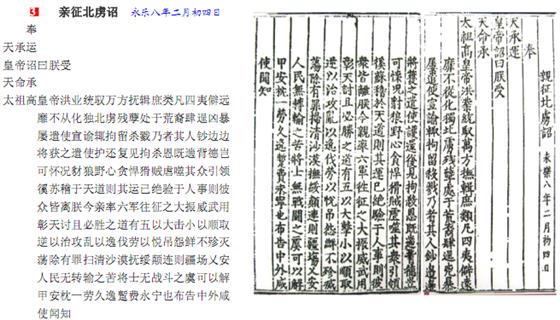 亲征北虏诏 永乐八年二月初四日
奉
天承运
皇帝诏曰朕受
天命承
太祖高皇帝洪业统驭万方抚辑庶类凡四夷僻远
靡不从化独北虏残孽处于荒裔肆逞凶暴
屡遣使宣谕辄拘留杀戮乃者其人钞边边
将获之遣使护还复见拘杀恩既逸背德岂
可怀况豺狼野心贪悍猾贼虐噬其众引领
徯苏稽于天道则其运已绝验于人事则彼
众皆离朕今亲率六军往征之大振威武用
彰天讨且必胜之道有五以大击小以顺取
逆以治攻乱以逸伐劳以悦吊怨鲜不殄灭
荡除有罪扫清沙漠抚绥颠连则疆场乂安
人民无转输之苦将士无战斗之虞可以解
甲安枕一劳久逸暂费永宁也布告中外咸
使闻知
親征北虜詔 永樂八年二月初四日
奉
天承運
皇帝詔曰朕受
天命承
太祖高皇帝洪業統馭萬方撫輯庶類凡四夷僻遠
靡不從化獨北虜殘孽處于荒裔肆逞兇暴
屢遣使宣諭輒拘留殺戮乃者其人鈔邊邊
將獲之遣使護還復見拘殺恩既背德豈
可懷況豺狼野心貪悍猾賊虐噬其眾引領
徯蘇稽於天道則其運已絕驗于人事則彼
眾皆離朕今親率六軍往征之大振威武用
彰天討且必勝之道有五以大擊小以順取
逆以治攻亂以逸伐勞以悅弔怨鮮不殄滅
蕩除有罪掃清沙漠撫綏顛連則疆場乂安
人民無轉輸之苦將士無戰鬬之虞可以解
甲安枕一勞久逸暫費永寧也布告中外咸
使聞知